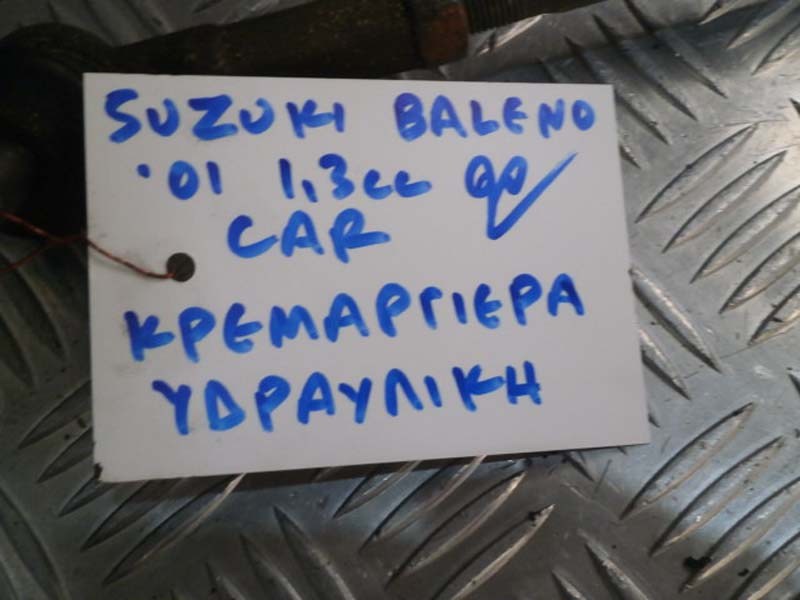 SUZUKI BALENO
'01 1,3cc
CAR
ΚΡΕΜΑΡΓΙΕΡΑ
ΥΔΡΑΥΛΙΚΗ